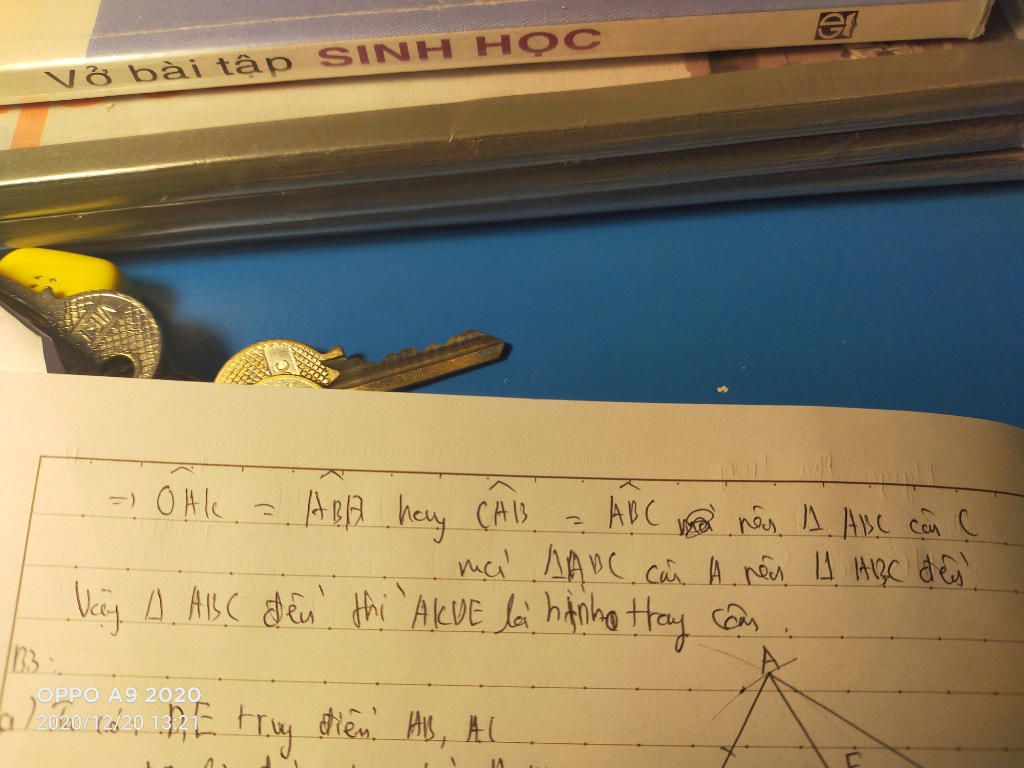 Vở bài tập SINH HỌC
=> OAK = ABD hay CAB = ABC nên Δ ABC cân C
mà ΔABC cân A nên Δ ABC đều
Vậy Δ ABC đều thì AKDE là hình thay cân.
B3:
A
OPPO A9 2020
2020/12/20 13:21
a) D,E trug điểm AB, AC
E